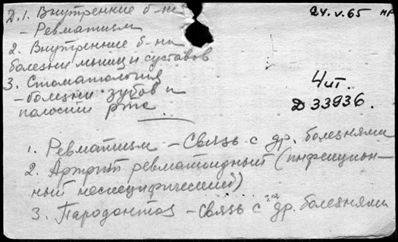 2.1. Внутренние б-ни
- Ревматизм
2. Внутренние б-ни
болезни мышц и суставов
3. Стоматология
- болезни зубов и
полости рта
24.V.65
Чит.
Д 33936.
1. Ревматизм - Связь с др. болезнями
2. Артрит ревматоидный (инфекцион-
ный неспецифический)
3. Пародонтоз - Связь с др. болезнями